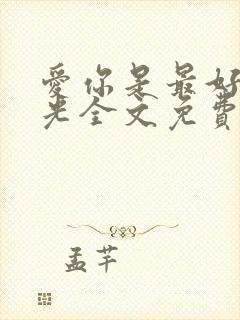 愛你是最好
光全文免費
孟芊